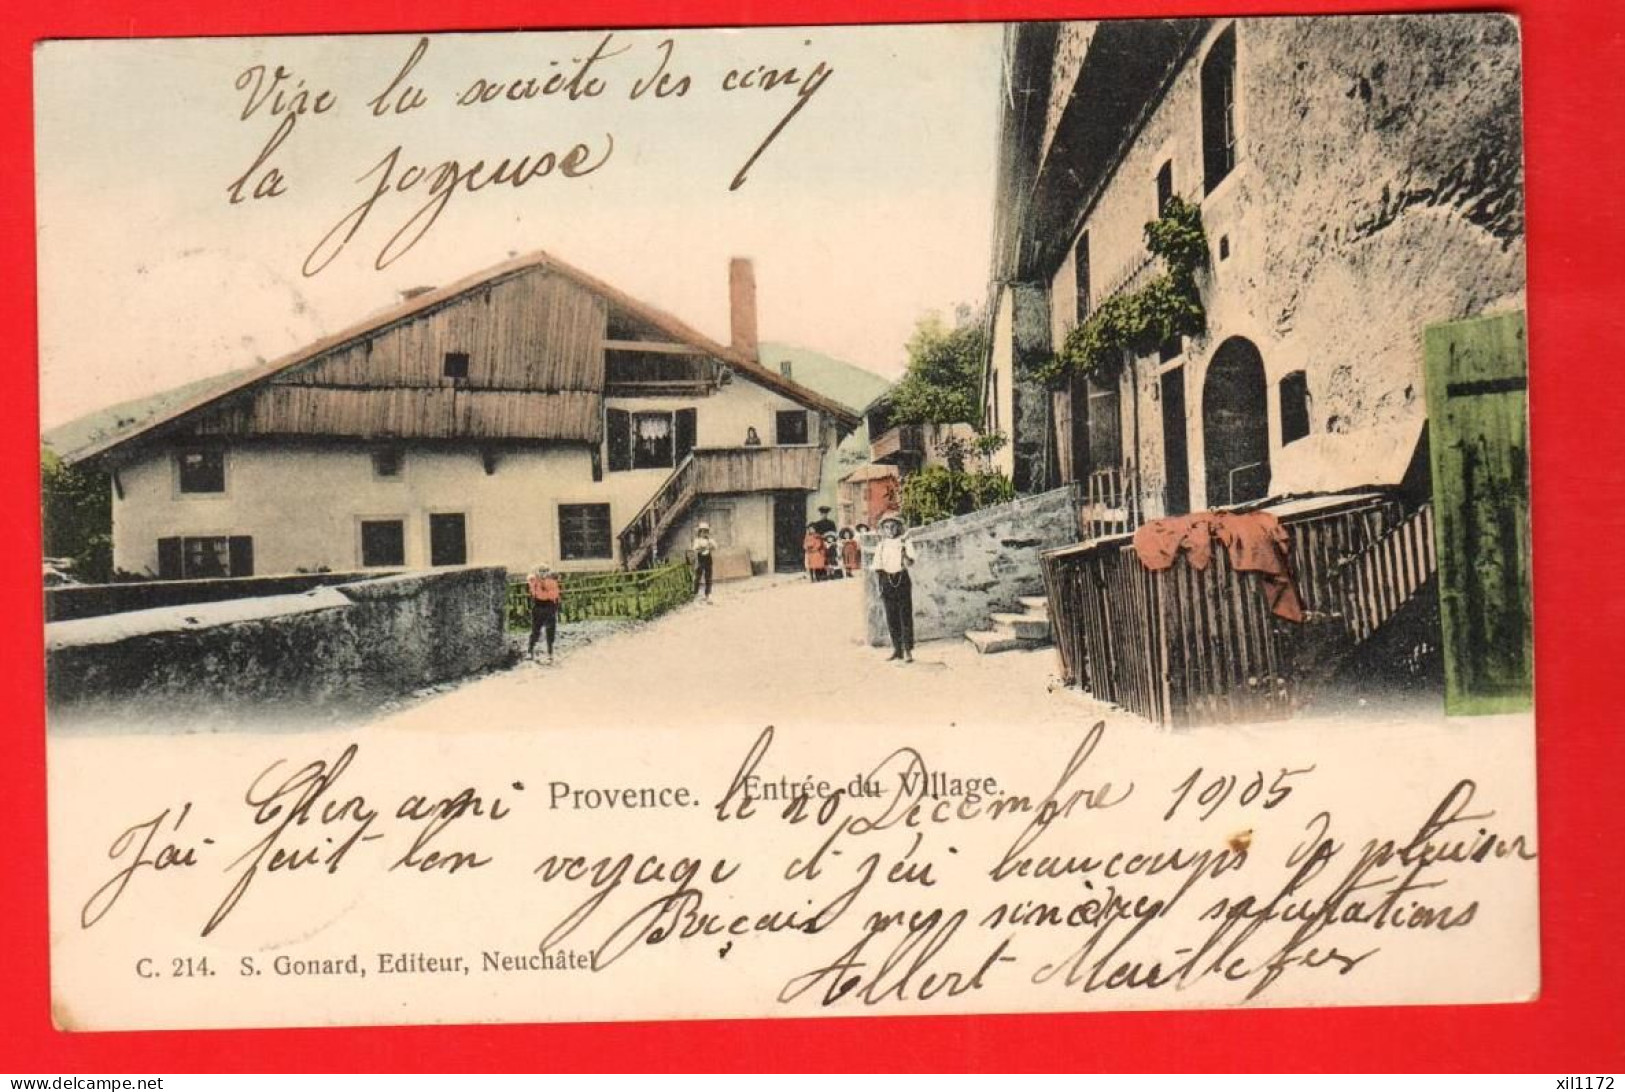 Vive la société des cinq
la joyeuse
Provence. Entrée du Village.
Cher ami le 20 Décembre 1905
J'ai fait bon voyage et j'ai beaucoups de plaisir
Reçais mes sincères salutations
C. 214. S. Gonard, Editeur, Neuchâtel
Albert Maillefer
delcampe.net
xil1172